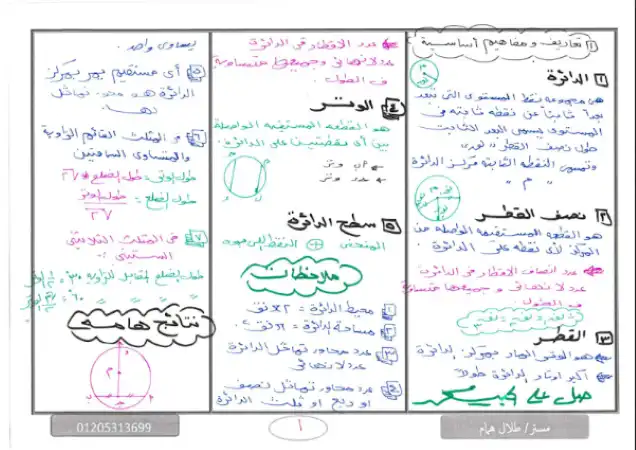 ١ تعاريف ومفاهيم أساسية
١ الدائرة
هى مجموعة نقط المستوى التى تبعد
بعداً ثابتاً عن نقطة ثابتة فى
المستوى يسمى البعد الثابت
طول نصف القطر "نق"
وتسمى النقطة الثابتة مركز الدائرة
" م "
٢ نصف القطر
هو القطعة المستقيمة الواصلة من
المركز لأى نقطة على الدائرة
عدد أنصاف الأقطار فى الدائرة
عدد لا نهائى و جميعها متساوية
فى الطول
٣ القطر
هو الوتر المار بمركز الدائرة
أكبر أوتار الدائرة طولاً
صل على الحبيب محمد
عدد الأقطار فى الدائرة
عدد لا نهائى وجميعها متساوية
فى الطول
٤ الوتر
هو القطعة المستقيمة الواصلة
بين أى نقطتين على الدائرة
أب وتر
جـ د وتر
٥ سطح الدائرة
المنحنى + النقط اللى جوه
ملاحظات
١ محيط الدائرة = ٢ π نق
٢ مساحة الدائرة = π نق٢
٣ عدد محاور تماثل الدائرة
عدد لا نهائى
٤ عدد محاور تماثل نصف
أو ربع أو ثلث الدائرة
يساوى واحد
٥ أى مستقيم يمر بمركز
الدائرة هو محور تماثل
لها
٦ فى المثلث القائم الزاوية
والمتساوى الساقين
طول الوتر = طول الضلع × √٢
طول الضلع = طول الوتر / √٢
٧ فى المثلث الثلاثينى
الستينى
طول الضلع المقابل للزاوية ٣٠ = ١/٢ الوتر
" " " ٦٠ = √٣/٢ الوتر
نتائج هامة
م
01205313699
١
مستر/ طلال همام